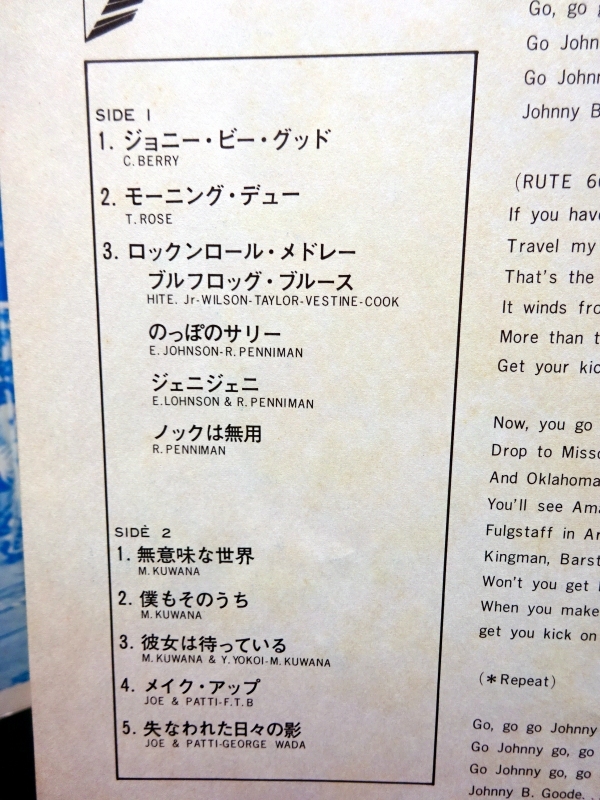 SIDE 1
1. ジョニー・ビー・グッド
C. BERRY
2. モーニング・デュー
T. ROSE
3. ロックンロール・メドレー
ブルフロッグ・ブルース
HITE. Jr-WILSON-TAYLOR-VESTINE-COOK
のっぽのサリー
E. JOHNSON-R. PENNIMAN
ジェニジェニ
E. LOHNSON & R. PENNIMAN
ノックは無用
R. PENNIMAN
SIDE 2
1. 無意味な世界
M. KUWANA
2. 僕もそのうち
M. KUWANA
3. 彼女は待っている
M. KUWANA & Y. YOKOI-M. KUWANA
4. メイク・アップ
JOE & PATTI-F.T.B
5. 失なわれた日々の影
JOE & PATTI-GEORGE WADA
Go, go
Go
Go
Johnny
(RUTE
If you
Travel my
That's the
It winds
More than
Get your
Now, you go
Drop to
And Oklahoma
You'll see
Fulgstaff in
Kingman,
Won't you get
When you make
get you kick on
(*Repeat)
Go, go go Johnny
Go Johnny go, go
Go Johnny go, go
Johnny B. Goode.